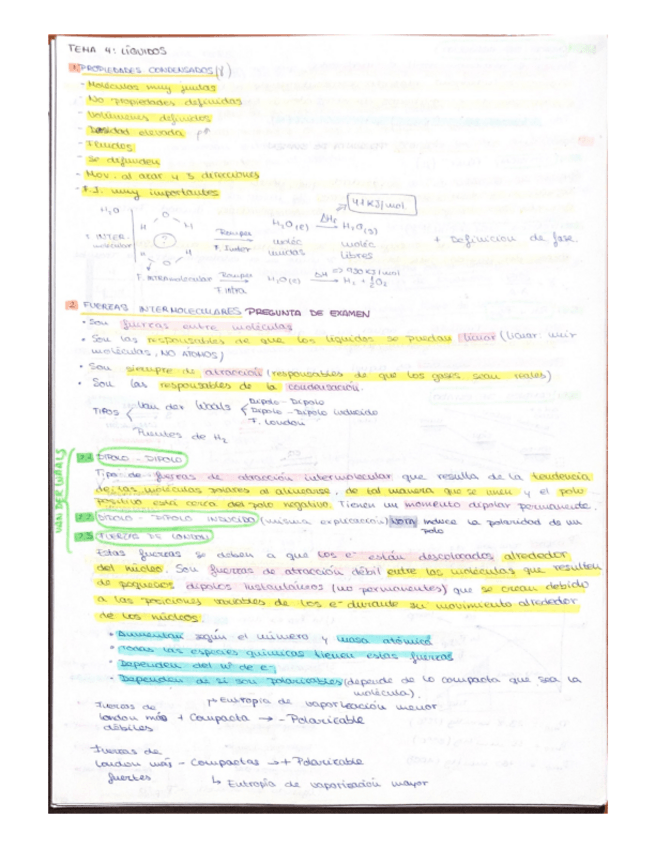 TEMA 4: LÍQUIDOS
1. PROPIEDADES CONDENSADOS (l)
- Moléculas muy juntas
- No propiedades definidas
- Volúmenes definidos
- Densidad elevada ρ↑
- Fluidos
- Se difunden
- Mov. al azar y 3 direcciones
- F.I. muy importantes
41 KJ/mol
H2O
H O H
F. INTER-molecular
?
Rompes F. Inter
H2O(l) moléc unidas
ΔHv
H2O(g) moléc libres
+ Definición de fase.
H O H
F. INTRAmolecular
Rompes F. Intra
H2O(l) ΔH 930 KJ/mol H2 + ½O2
2. FUERZAS INTERMOLECULARES PREGUNTA DE EXAMEN
• Son fuerzas entre moléculas
• Son las responsables de que los líquidos se puedan licuar (licuar: unir
moléculas, NO ÁTOMOS)
• Son siempre de atracción (responsables de que los gases sean reales)
• Son las responsables de la condensación.
TIPOS
Van der Waals
Dipolo - Dipolo
Dipolo - Dipolo inducido
F. London
Puentes de H2
VAN DER WAALS
2.1 DIPOLO - DIPOLO
Tipo de fuerzas de atracción intermolecular que resulta de la tendencia
de las moléculas polares al alinearse, de tal manera que se unen y el polo
positivo está cerca del polo negativo. Tienen un momento dipolar permanente.
2.2 DIPOLO - DIPOLO INDUCIDO (misma explicación) NOTA induce la polaridad de un
polo
2.3 FUERZAS DE LONDON
Estas fuerzas se deben a que los e- están descolocados alrededor
del núcleo. Son fuerzas de atracción débil entre las moléculas que resulten
de pequeños dipolos instantáneos (no permanentes) que se crean debido
a las posiciones variables de los e- durante su movimiento alrededor
de los núcleos.
• Aumentan según el número y masa atómica
• Todas las especies químicas tienen estas fuerzas
• Dependen del nº de e-
• Dependen de si son polarizables (depende de lo compacta que sea la
molécula).
→ Entropía de vaporización menor
Fuerzas de
London más + Compacta → - Polarizable
débiles
Fuerzas de
London más - Compactas → + Polarizable
fuertes
↳ Entropía de vaporización mayor